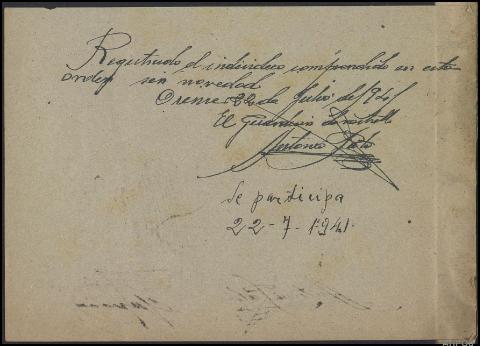 Registrado el individuo comprendido en esta
orden sin novedad
Orense 22 de Julio de 1941
El Guardia
Antonio
Se participa
22-7-1941.